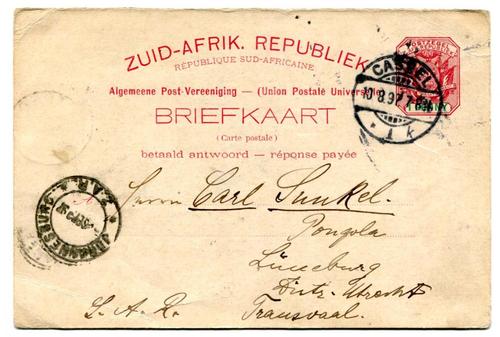 ZUID-AFRIK. REPUBLIEK
RÉPUBLIQUE SUD-AFRICAINE
Algemeene Post-Vereeniging — (Union Postale Universelle)
BRIEFKAART
(Carte postale)
betaald antwoord — réponse payée
1 PENNY
CASSEL
10.8.97
* 1 k
JOHANNESBURG
Z.A.R.
Herrn Carl Sunkel.
Pongola
Lüneburg
Distr. Utrecht
S. A. R. Transvaal.